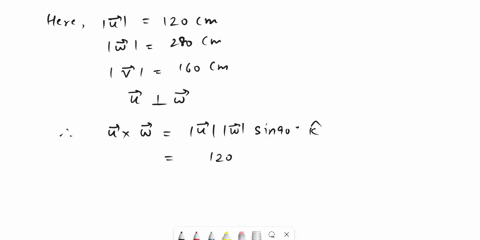 Here, |u⃗| = 120 cm
|w⃗| = 280 cm
|v⃗| = 160 cm
u⃗ ⊥ w⃗
∴ u⃗ × w⃗ = |u⃗| |w⃗| sin90· k̂
= 120